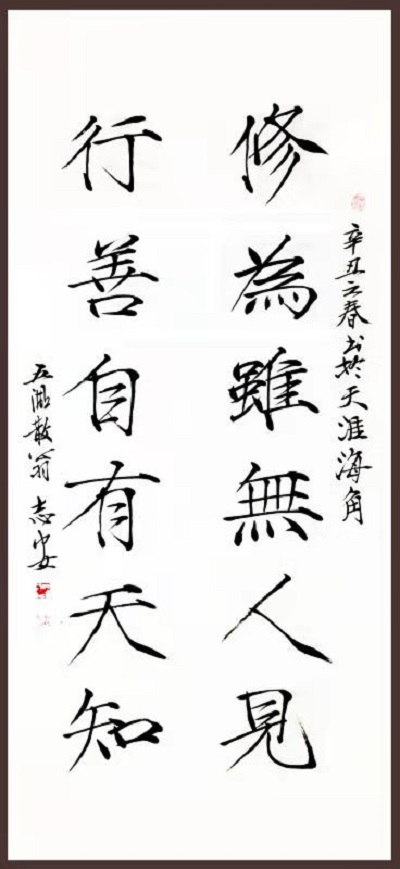 辛丑之春书於天涯海角
修為雖無人見
行善自有天知
五湖散翁志安